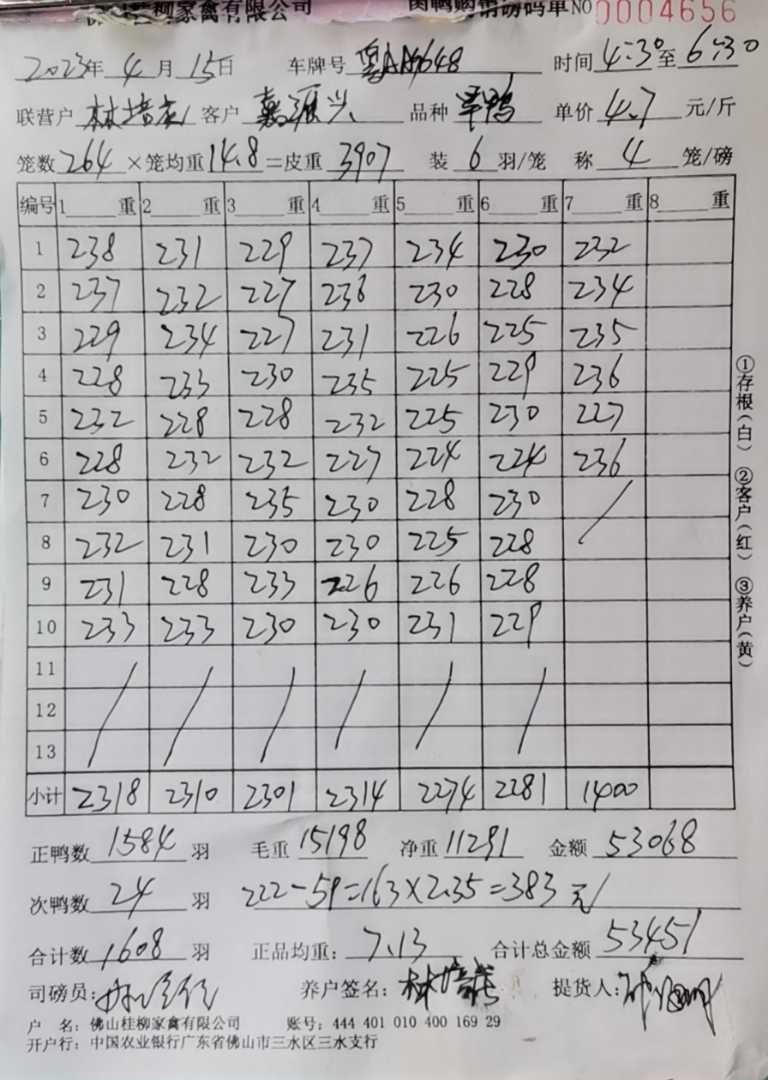 桂柳家禽有限公司 肉鸭购销磅码单NO 0004656
2023年 4 月 15日 车牌号 粤 648 时间 4:30 至 6:30
联营户 林培 客户 嘉源兴 品种 单鸭 单价 4.7 元/斤
笼数 264 ×笼均重 14.8 =皮重 3907 装 6 羽/笼 称 4 笼/磅
编号 1 重 2 重 3 重 4 重 5 重 6 重 7 重 8 重
1 238 231 229 237 234 230 232
2 237 232 227 236 230 228 234
3 229 234 227 231 226 225 235
4 228 233 230 235 225 229 236
5 232 228 228 232 225 230 227
6 228 232 232 227 224 224 236
7 230 228 235 230 228 230 /
8 232 231 230 230 225 228
9 231 228 233 226 226 228
10 233 233 230 230 231 229
11
12
13
小计 2318 2310 2301 2314 2274 2281 1400
正鸭数 1584 羽 毛重 15198 净重 11291 金额 53068
次鸭数 24 羽 222-59=163×2.35=383元
合计数 1608 羽 正品均重: 7.13 合计总金额 53451
司磅员: 养户签名: 林培 提货人:
户 名: 佛山桂柳家禽有限公司 账号: 444 401 010 400 169 29
开户行: 中国农业银行广东省佛山市三水区三水支行
①存根(白) ②客户(红) ③养户(黄)